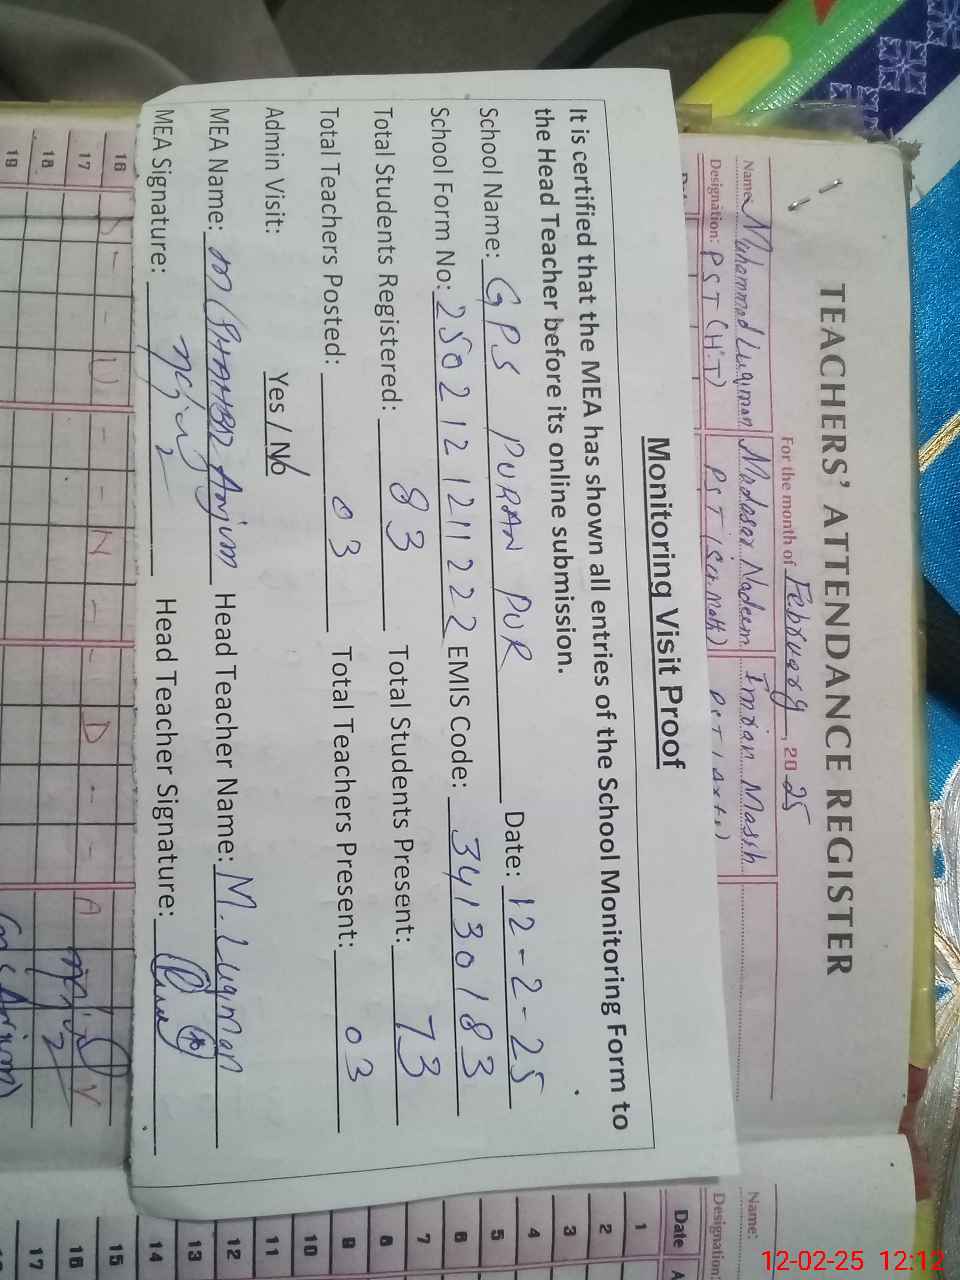 TEACHERS' ATTENDANCE REGISTER
For the month of February, 2025
Name: Muhammad Luqman Madasar Nadeem Imran Massh
Designation: PST (H.T) PST (Sci Math)
Monitoring Visit Proof
It is certified that the MEA has shown all entries of the School Monitoring Form to
the Head Teacher before its online submission.
School Name: GPS PURAN PUR Date: 12-2-25
School Form No: 250212121122 2 EMIS Code: 34130183
Total Students Registered: 83 Total Students Present: 73
Total Teachers Posted: 03 Total Teachers Present: 03
Admin Visit: Yes / No
MEA Name: Anjum Head Teacher Name: M. Luqman
MEA Signature: Head Teacher Signature:
16
17 U N D A
18
19
Name:
Designation:
Date A
1
2
3
4
5
6
7
8
9
10
11
12
13
14
15
16
17
12-02-25 12:12